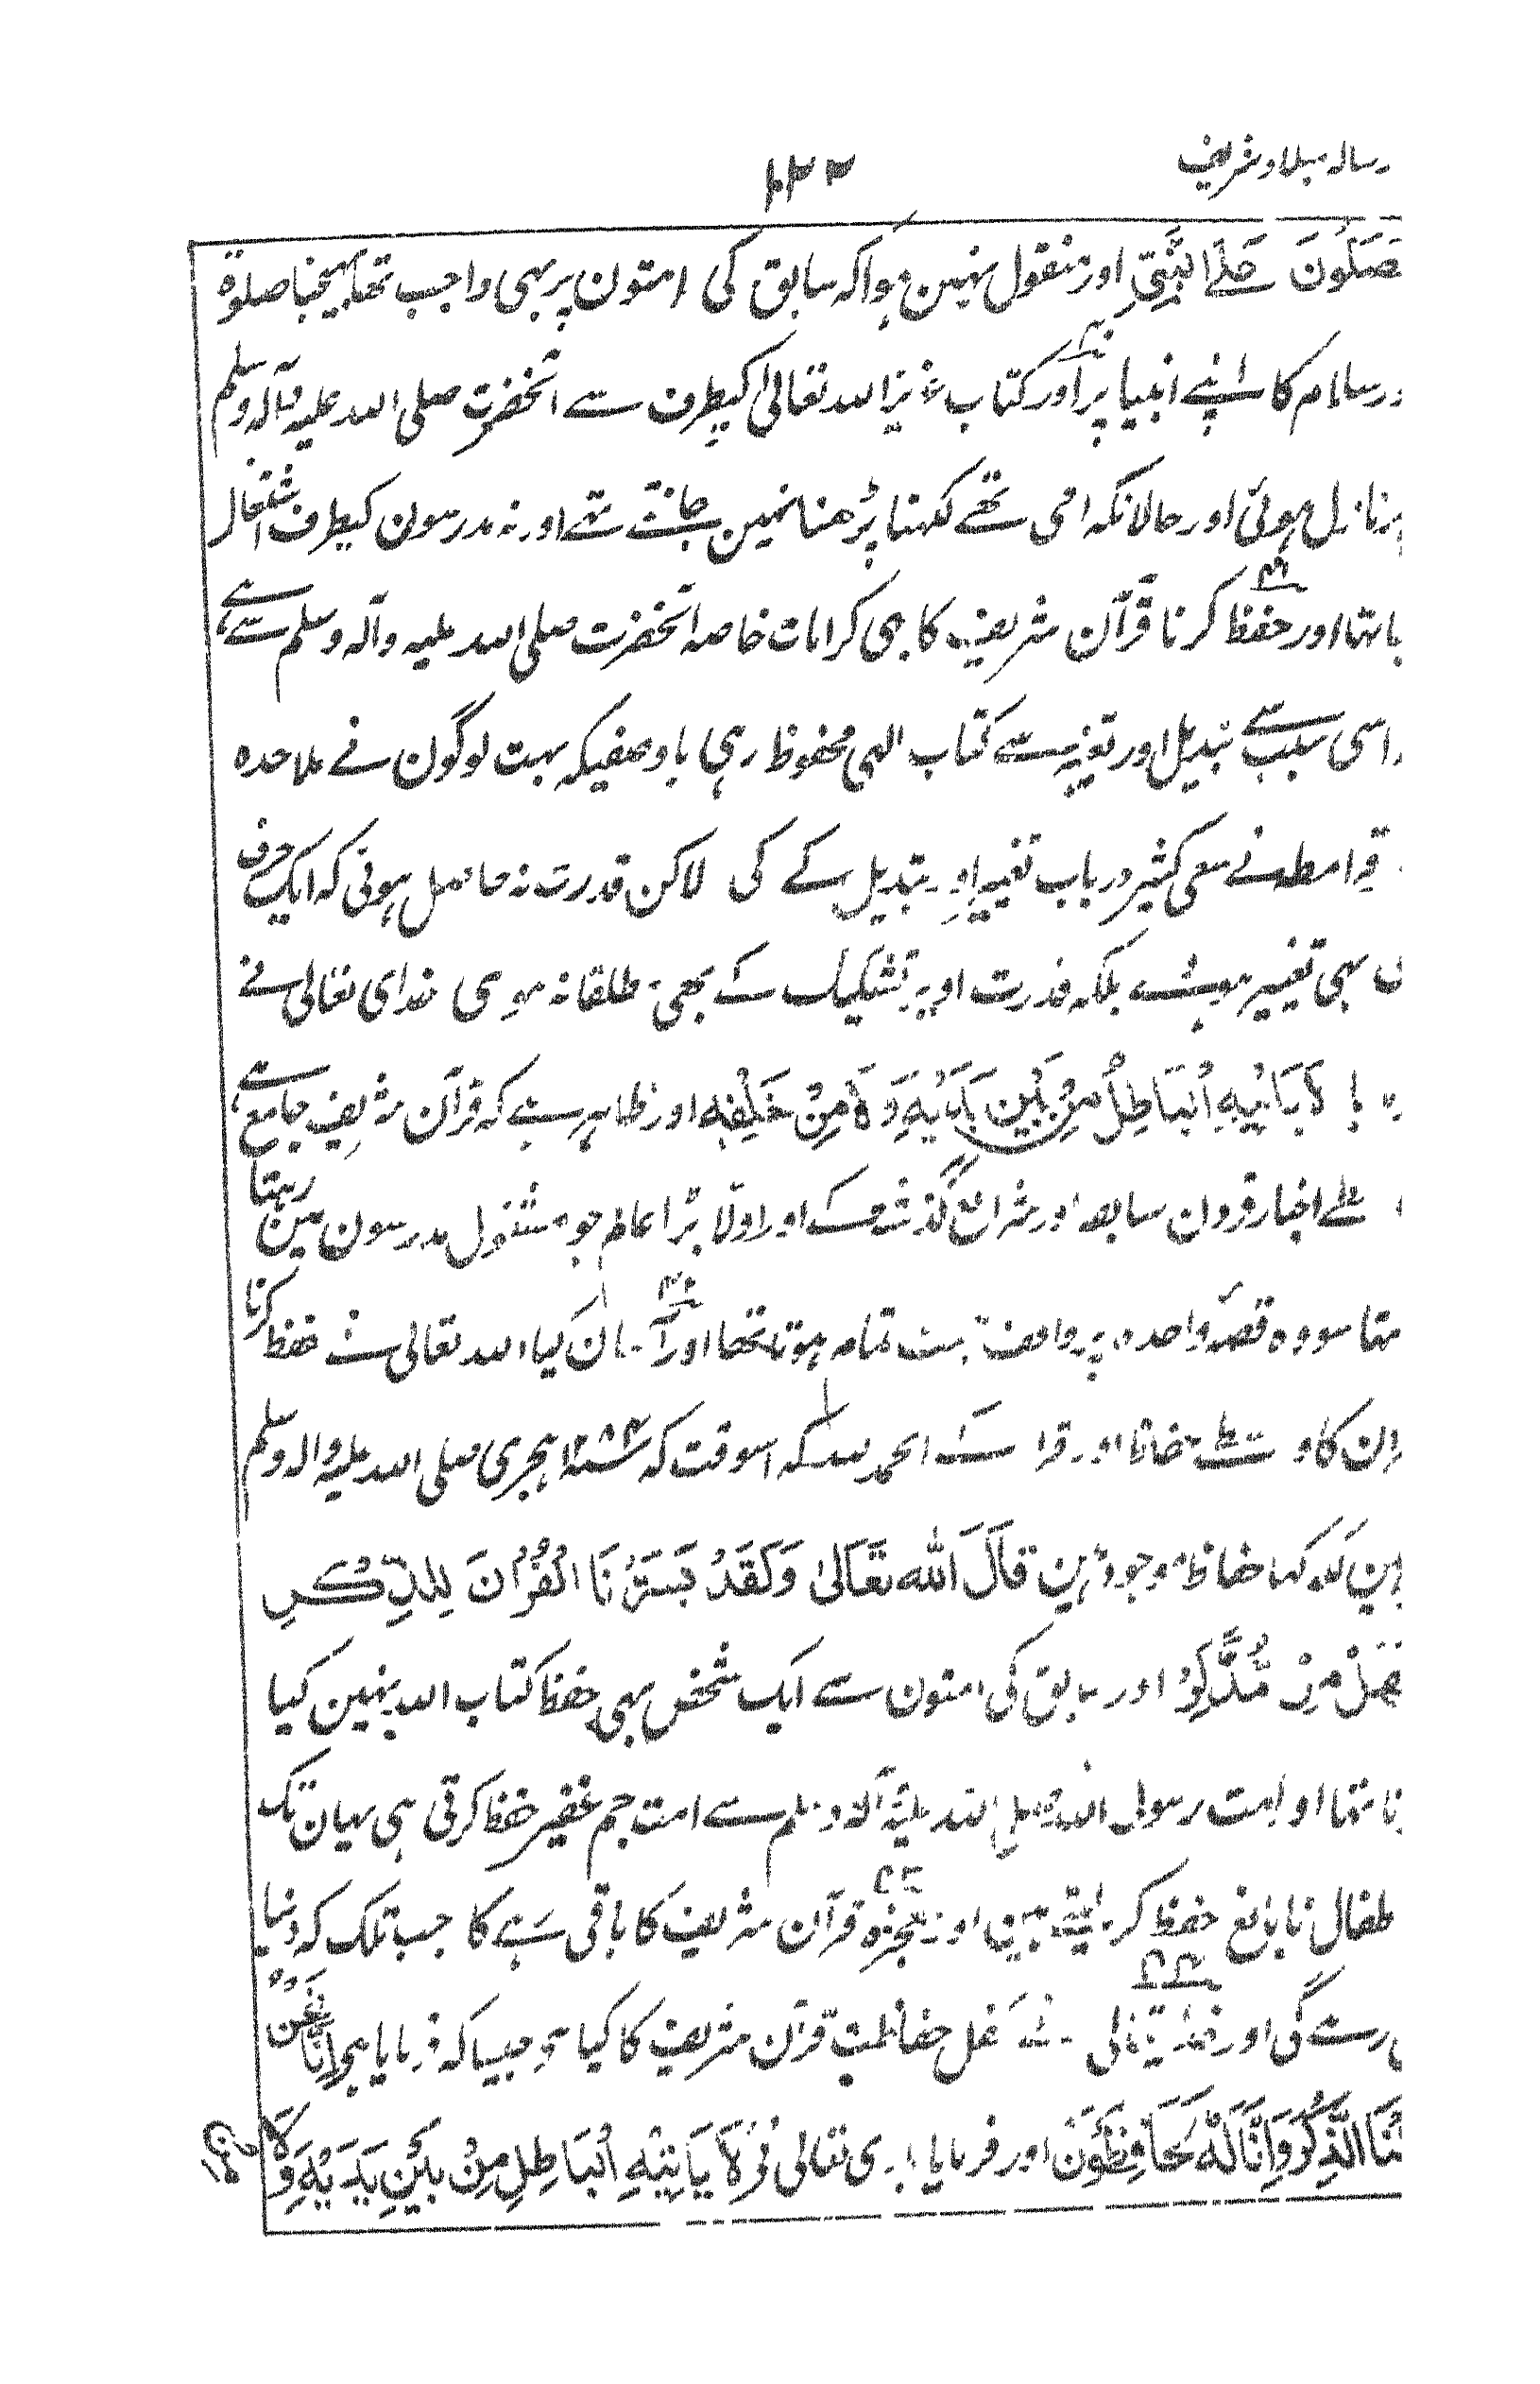 رسالہ میلاد شریف
۱۲۲
یُصَلُّونَ عَلَى النَّبِيِّ اور منقول نہین ہوا کہ سابق کی امتون پر بہی واجب تہا بہیجنا صلوۃ
ور سلام کا اپنے انبیا پر اور کتاب عزیز اللہ تعالیٰ کیطرف سے آنحضرت صلی اللہ علیہ وآلہ وسلم
پر نازل ہوئی اور حالانکہ امی تھے لکہنا پڑھنا نہین جانتے تہے اور نہ مدرسون کیطرف اشتغال
اور حفظ کرنا قرآن شریف کا بہی کرامات خاصہ آنحضرت صلی اللہ علیہ وآلہ وسلم سے ہے
اسی سبب سے تبدیل اور تغییر سے کتاب الہی محفوظ رہی باوصفیکہ بہت لوگون نے ملاحدہ
قرامطہ نے سعی کثیر در باب تغییر اور تبدیل کے کی لاکن قدرت نہ حاصل ہوئی کہ ایک حرف
بہی تغییر بلکہ قدرت اوپر تشکیک کے بھی مطلقا نہ ہوی خدای تعالی نے
لَا يَأْتِيهِ الْبَاطِلُ مِنْ بَيْنِ يَدَيْهِ وَلَا مِنْ خَلْفِهِ اور ظاہر ہے کہ قرآن شریف جامع ہے
اخبار قرون سابقہ اور شرائع گذشتہ اور اولا بڑا عالم جو مشغول مدرسون مین رہتا
تہا سو وہ قصہ واحدہ پر واقف تمام ہوتا تھا اور آسان کیا اللہ تعالی نے حفظ کرنا
الحمد للہ کہ اسوقت کہ ہجری صلی اللہ علیہ والہ وسلم
لکہہا حفاظ موجود ہین قَالَ اللهُ تَعَالىٰ وَلَقَدْ يَسَّرْنَا الْقُرْآنَ لِلذِّكْرِ
فَهَلْ مِنْ مُّدَّكِرْ اور سابق کی امتون سے ایک شخص بہی حفظ کتاب اللہ نہین کیا
تہا اور امت رسول اللہ صلی اللہ علیہ وآلہ وسلم سے امت جم غفیر حفظ کرتی ہی یہان تک
طفال نابالغ حفظ کر لیتے ہین اور معجزہ قرآن شریف کا باقی رہے گا جب تلک کہ دنیا
رہے گی اور خداے تعالی نے حفاظت قرآن شریف کا کیا ہے جیسا کہ فرمایا ہی اِنَّا نَحْنُ
نَزَّلْنَا الذِّكْرَ وَاِنَّا لَهُ لَحَافِظُونَ اور فرمایا باری تعالی نے لَا يَأْتِيْهِ الْبَاطِلُ مِنْ بَيْنِ يَدَيْهِ وَلَا